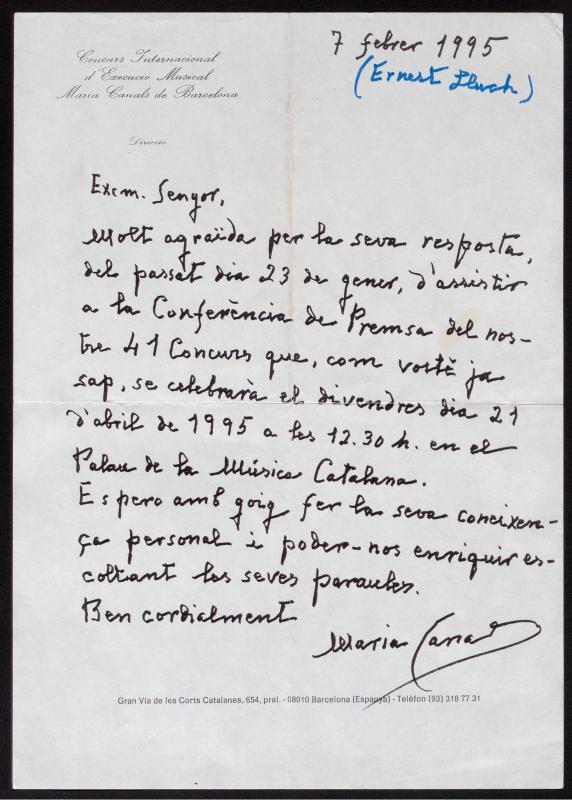 Concurs Internacional
d'Execució Musical
Maria Canals de Barcelona
Direcció
7 febrer 1995
(Ernest Lluch)
Excm. Senyor,
Molt agraïda per la seva resposta,
del passat dia 23 de gener, d'assistir
a la Conferència de Premsa del nos-
tre 41 Concurs que, com vostè ja
sap, se celebrarà el divendres dia 21
d'abril de 1995 a les 12.30 h. en el
Palau de la Música Catalana.
Espero amb goig fer la seva coneixen-
ça personal i poder-nos enriquir es-
coltant les seves paraules.
Ben cordialment
Maria Canals
Gran Via de les Corts Catalanes, 654, pral. - 08010 Barcelona (Espanya) - Telèfon (93) 318 77 31